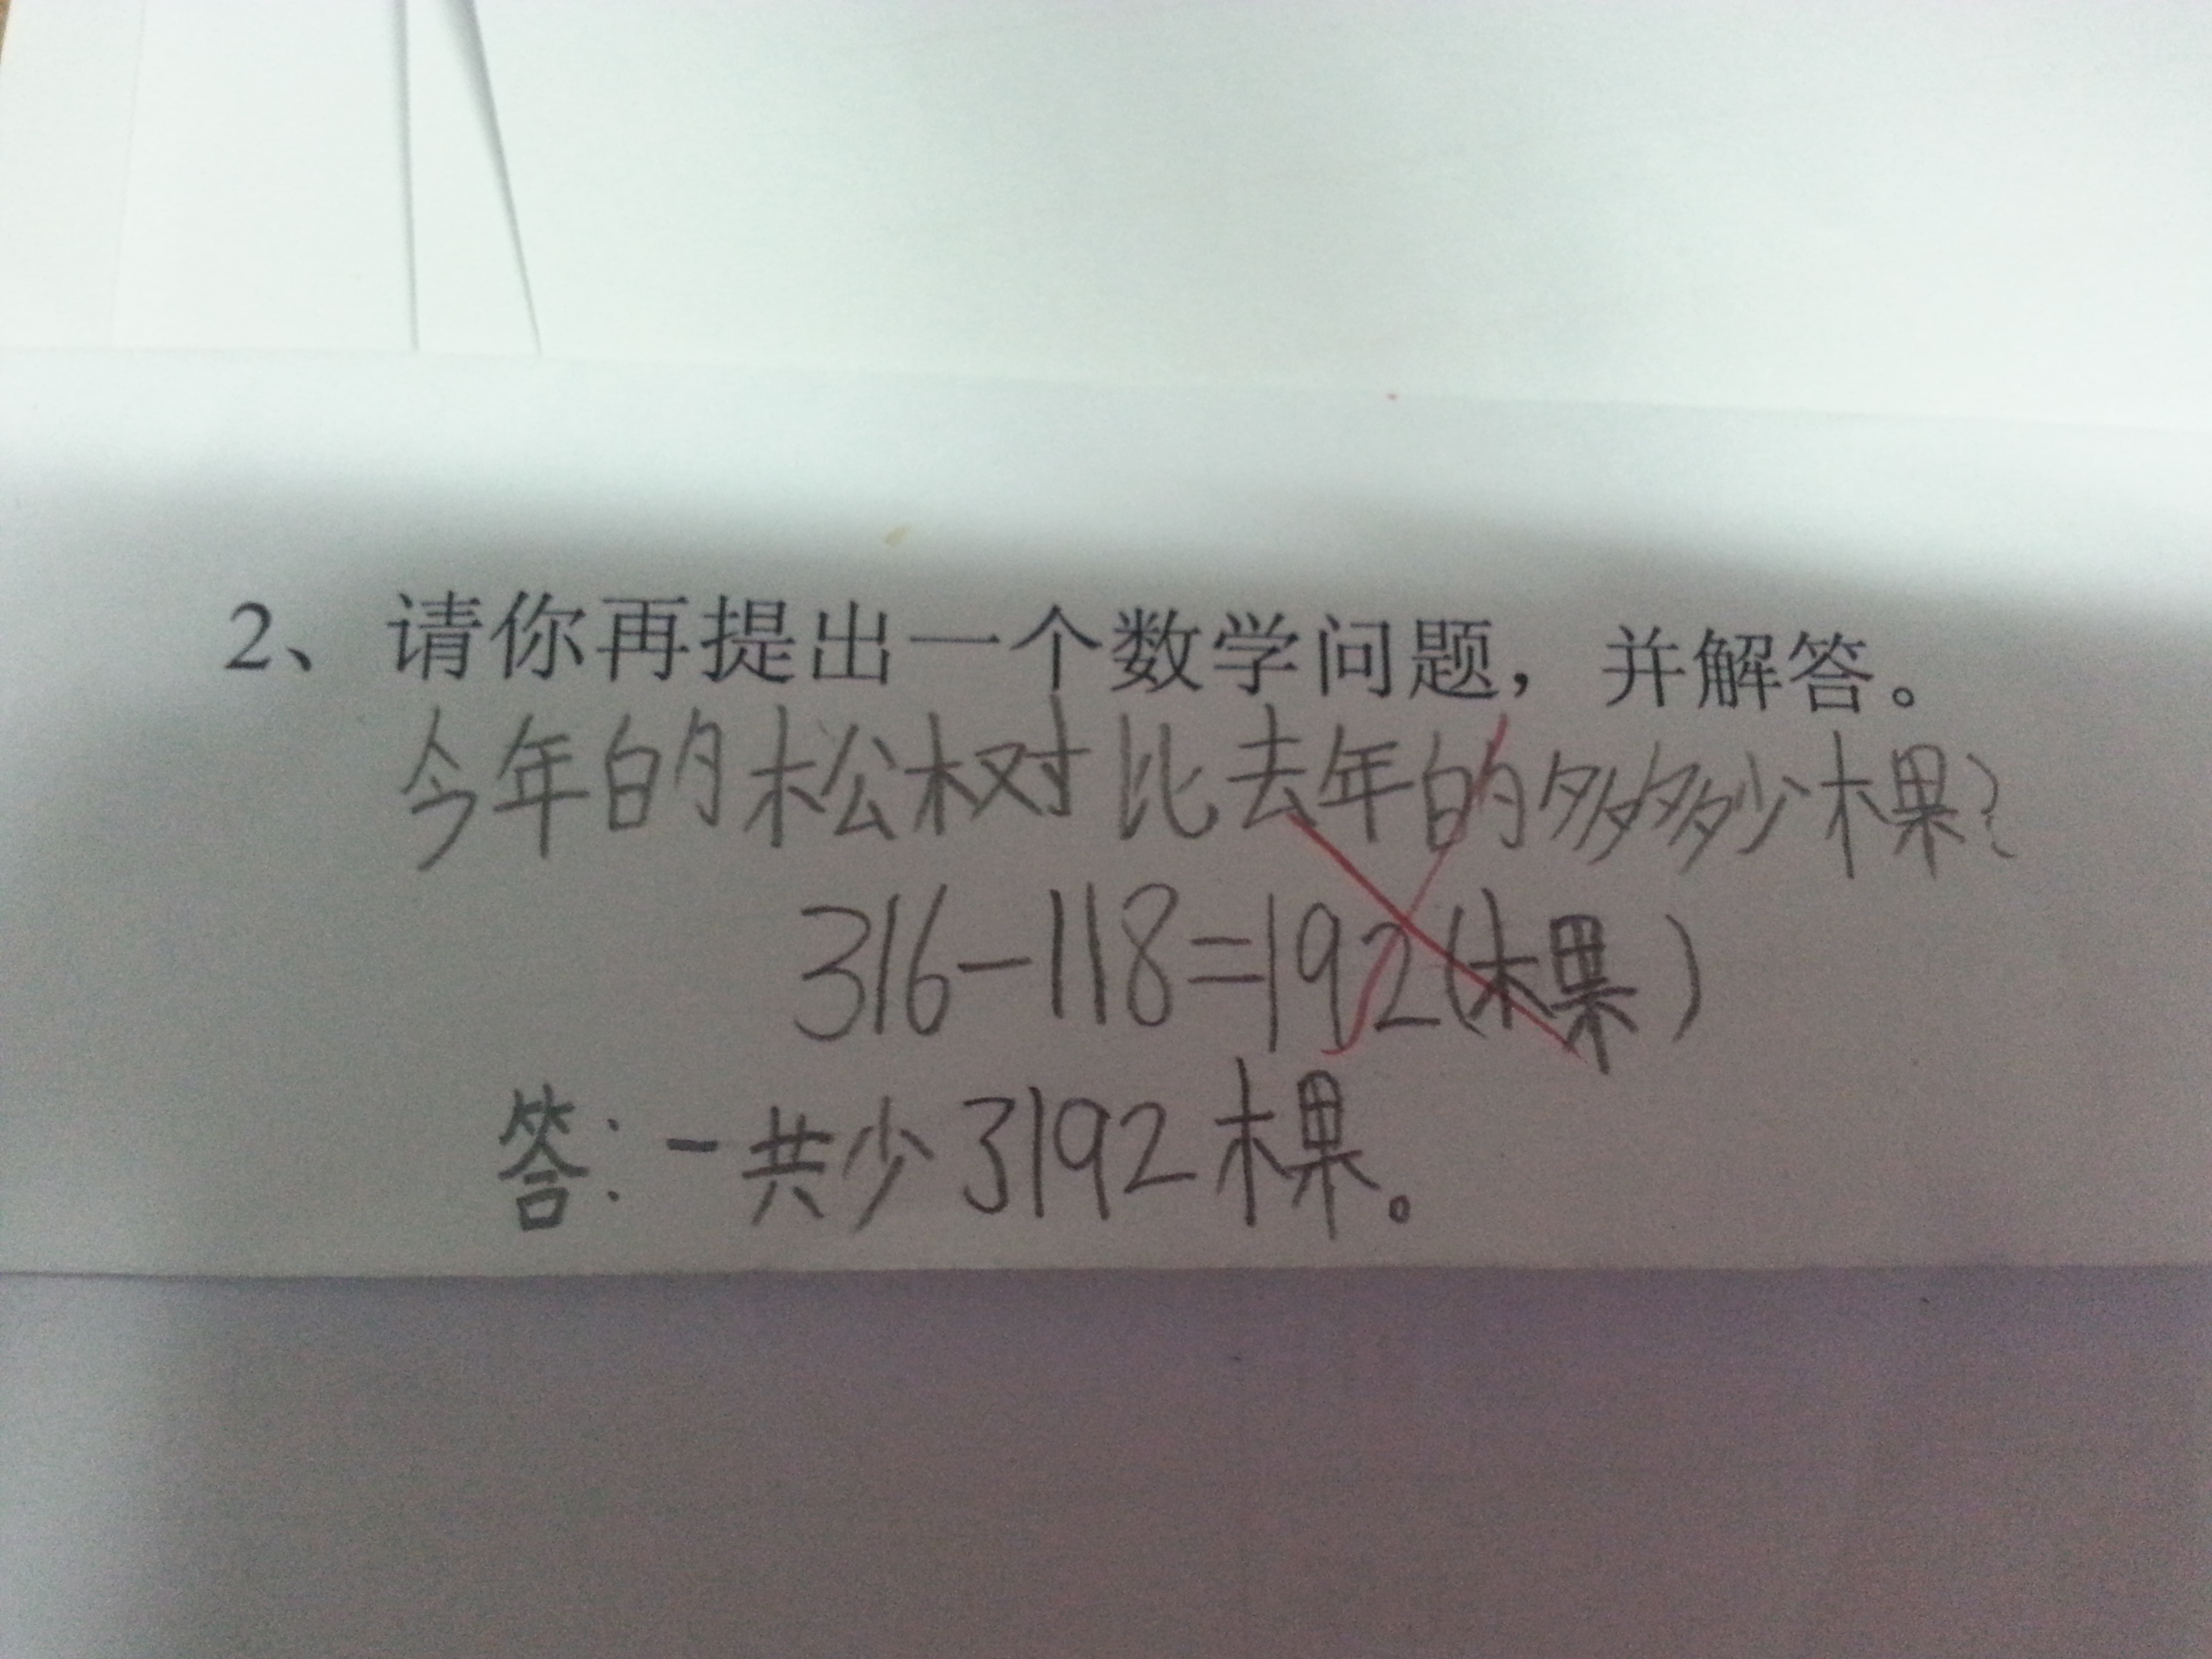 2、请你再提出一个数学问题，并解答。
今年的松树比去年的多多少棵？
316-118=192(棵)
答：一共少3192棵。